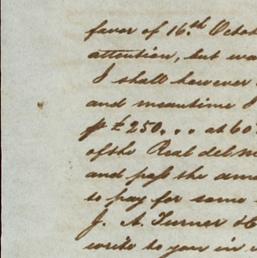 favor of 16.th Octob
attention, but wa
I shall however
and meantime I
pr £250,, at 60
of the Real del M
and pass the am
to pay for some
J. A. Turner & C
write to you in